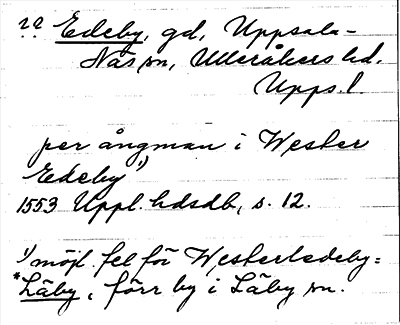 ?? Edeby, gd, Uppsala-
Näs sn, Ulleråkers hd.
Upps. l.
per ångman i Wester
Edeby 1)
1553 Uppl. hdsdb, s. 12.
1) möjl. fel för Westerledeby =
*Läby, förr by i Läby sn.